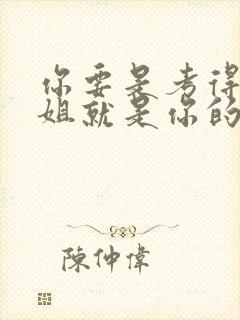 你要是考得
姐就是你的
陳仲偉